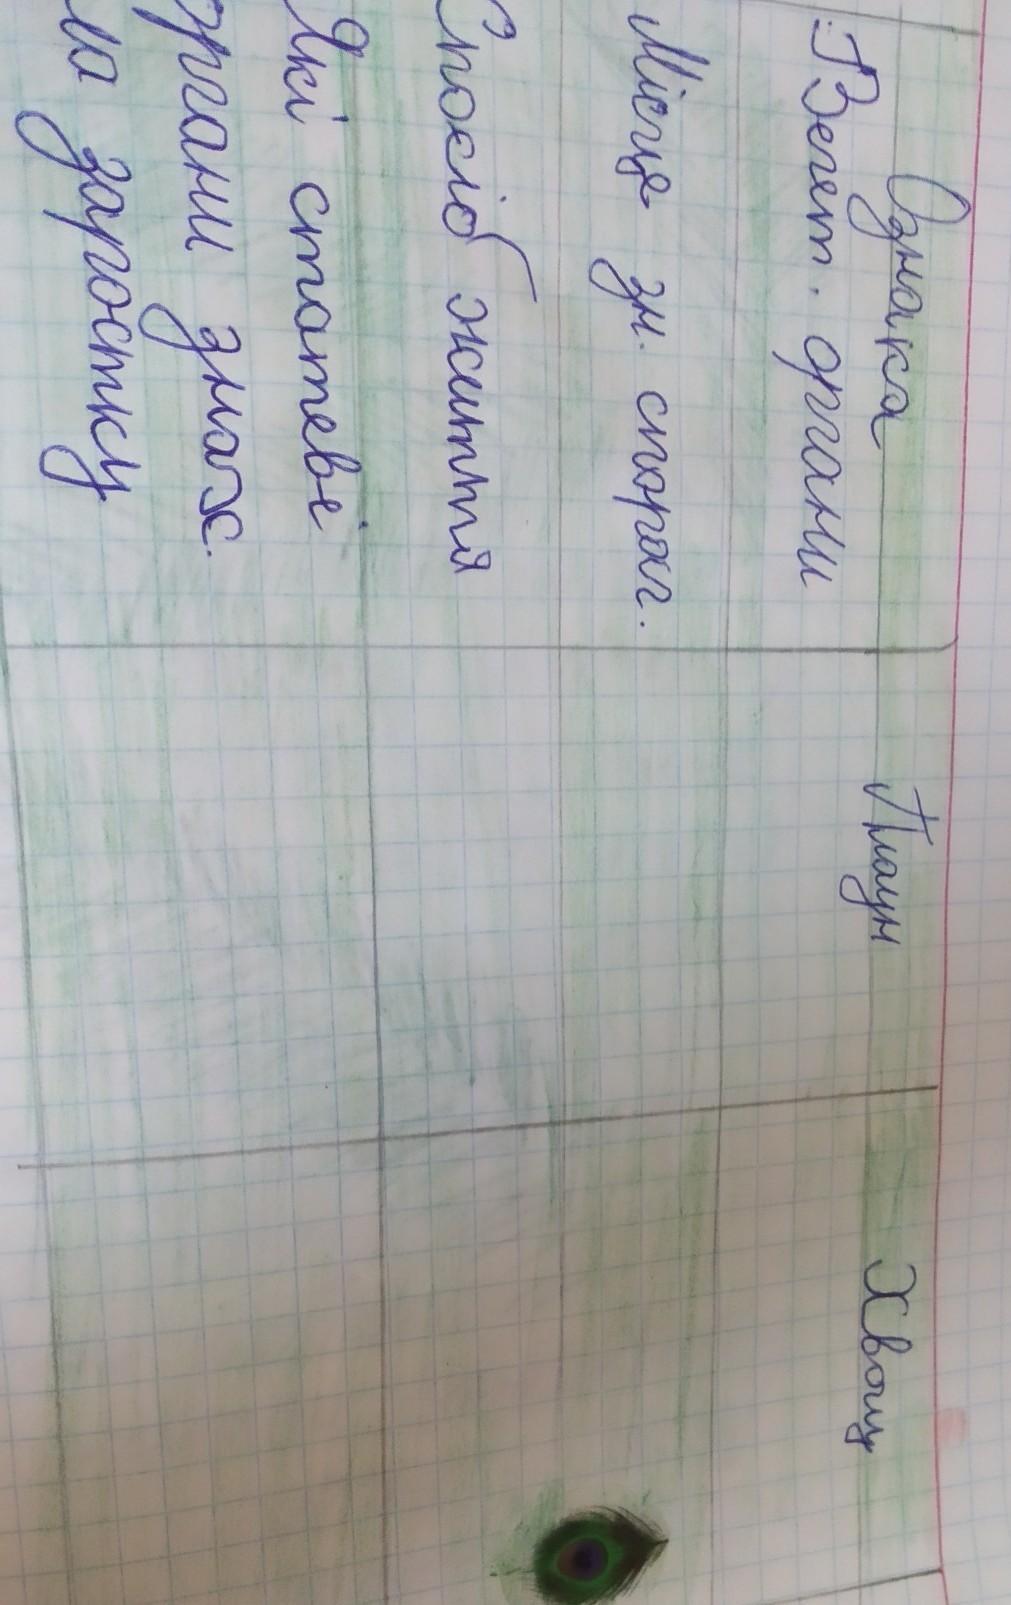 Ознака Плаун Хвощ
Вегет. органи
Місце зн. спораг.
Спосіб життя
Які статеві
органи знах.
на заростку